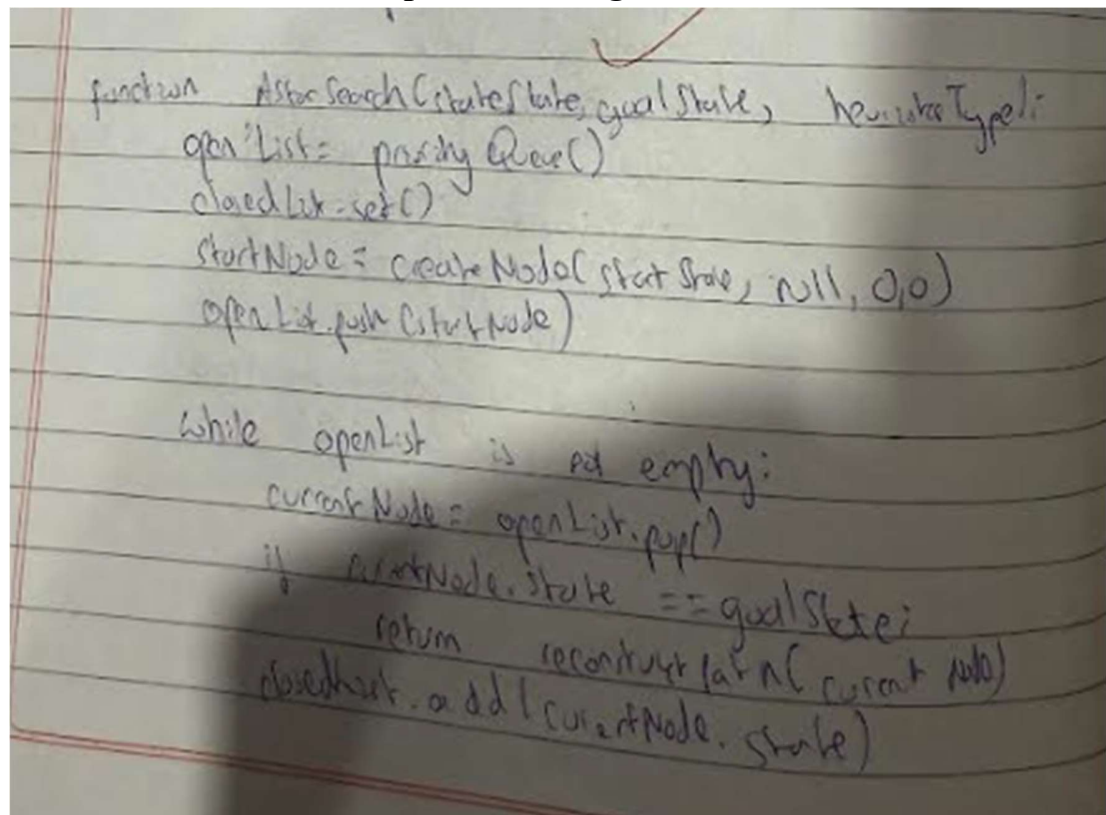 function AstarSearch(stateState, goalState, heuristicType):
openList = priorityQueue()
closedList = set()
startNode = createNode(startState, null, 0,0)
openList.push(startNode)
while openList is not empty:
currentNode = openList.pop()
if currentNode.state == goalState:
return reconstructPath(currentNode)
closedList.add(currentNode.state)